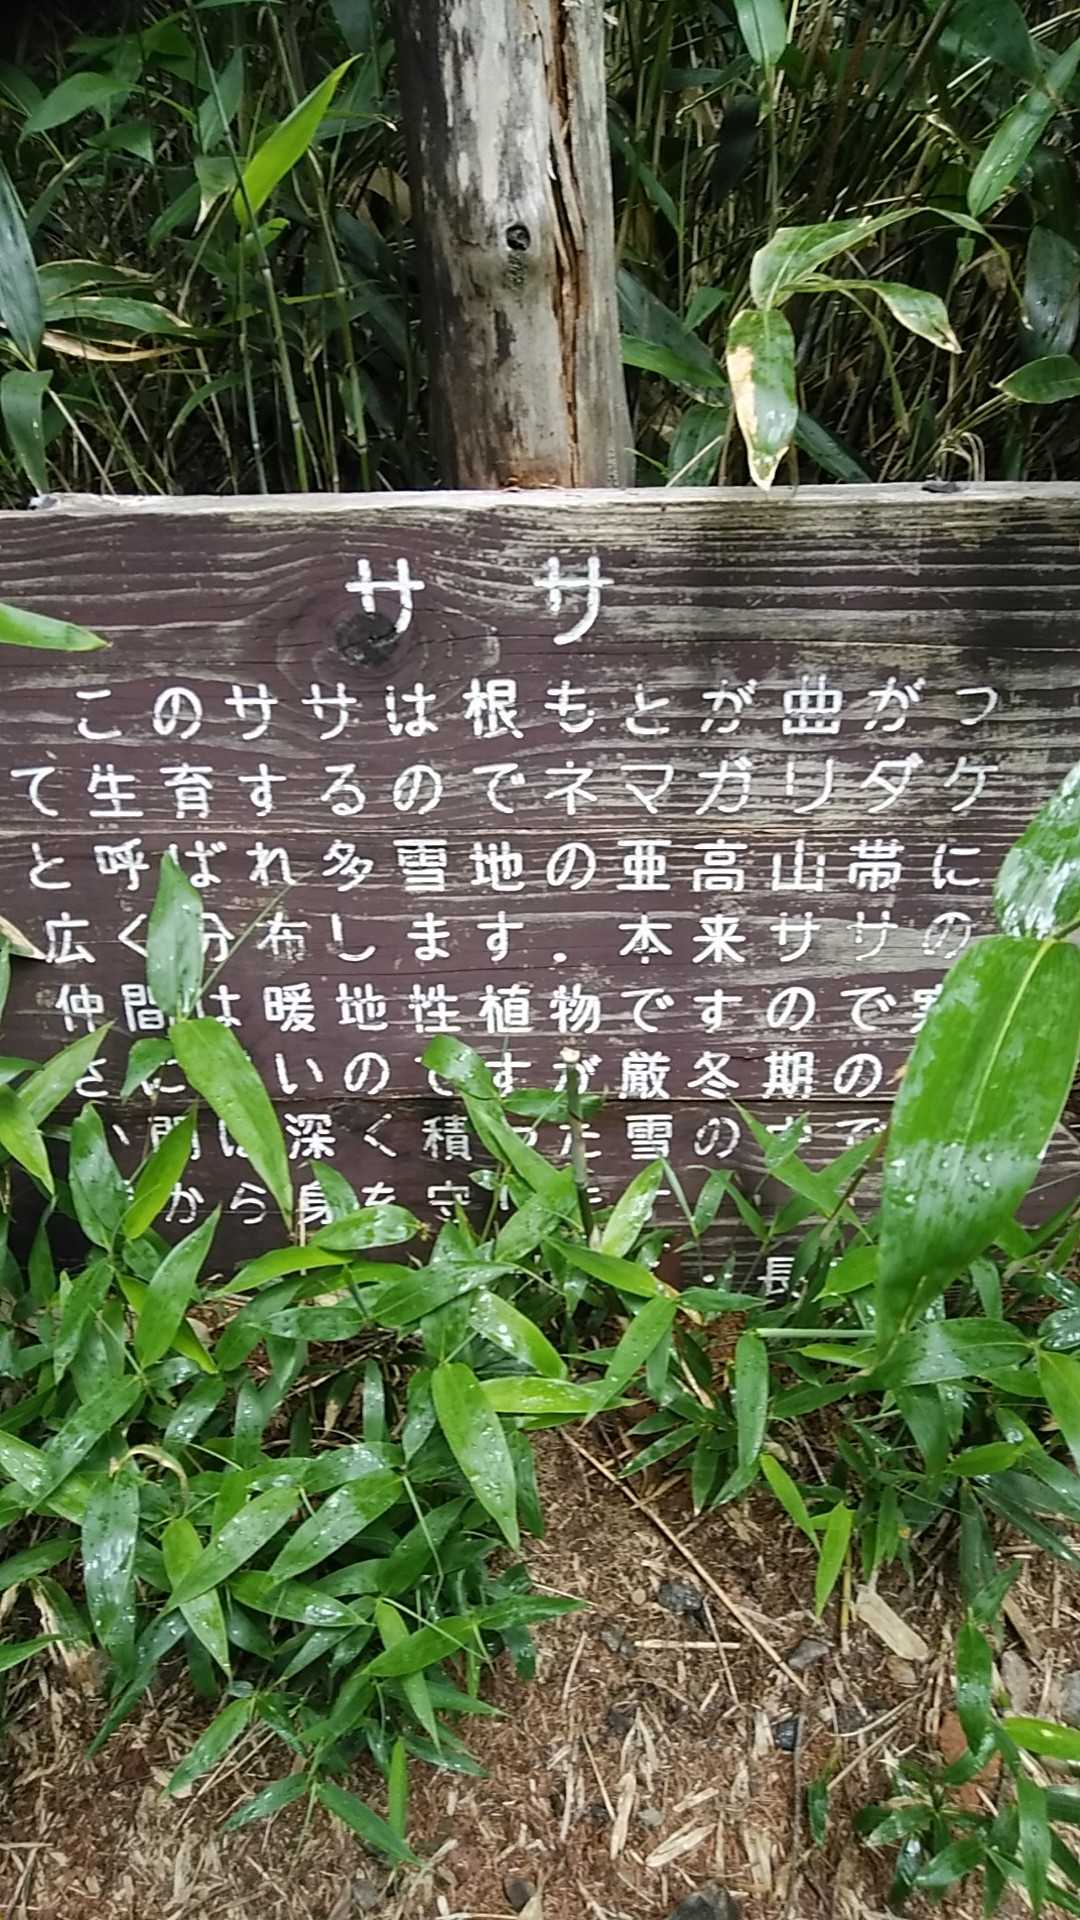 ササ
このササは根もとが曲がっ
て生育するのでネマガリダケ
と呼ばれ多雪地の亜高山帯に
広く分布します．本来ササの
仲間は暖地性植物ですので
さに いのですが厳冬期の
間は深く積った雪の中で
から身を守
長